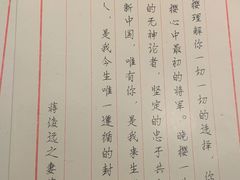 樱理解你一切一切的选择，你
樱心中最初的将军。晚樱一
的无神论者，坚定的忠于共
新中国，唯有你，是我来生
人，是我今生唯一遵循的封
蒋谅远之妻